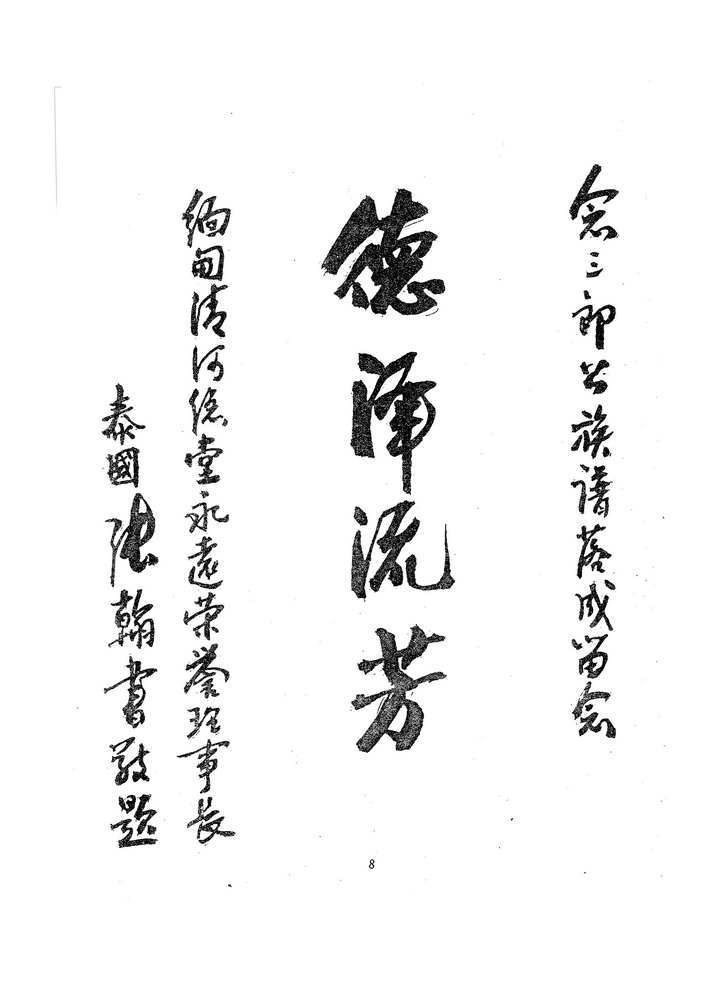 念三郎公族譜落成留念
德泽流芳
緬甸清河總堂永遠荣誉理事長
泰國張翰書敬題
8